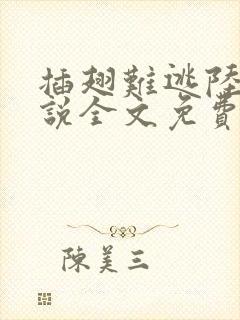 插翅難逃陸
說全文免費
陳美三